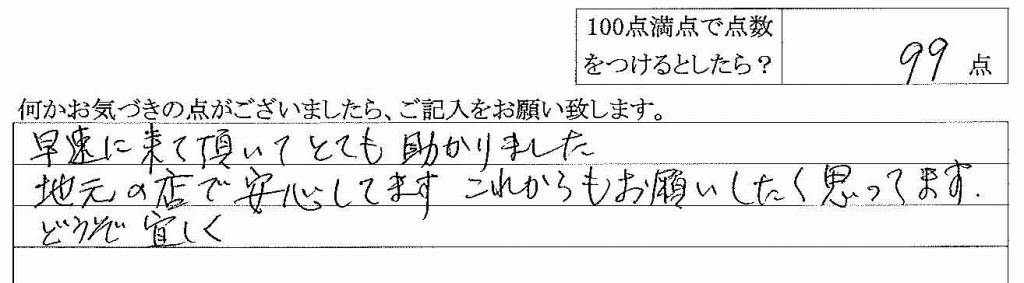 100点満点で点数
をつけるとしたら?
99 点
何かお気づきの点がございましたら、ご記入をお願い致します。
早速に来て頂いてとても助かりました
地元の店で安心してます これからもお願いしたく思ってます.
どうぞ宜しく